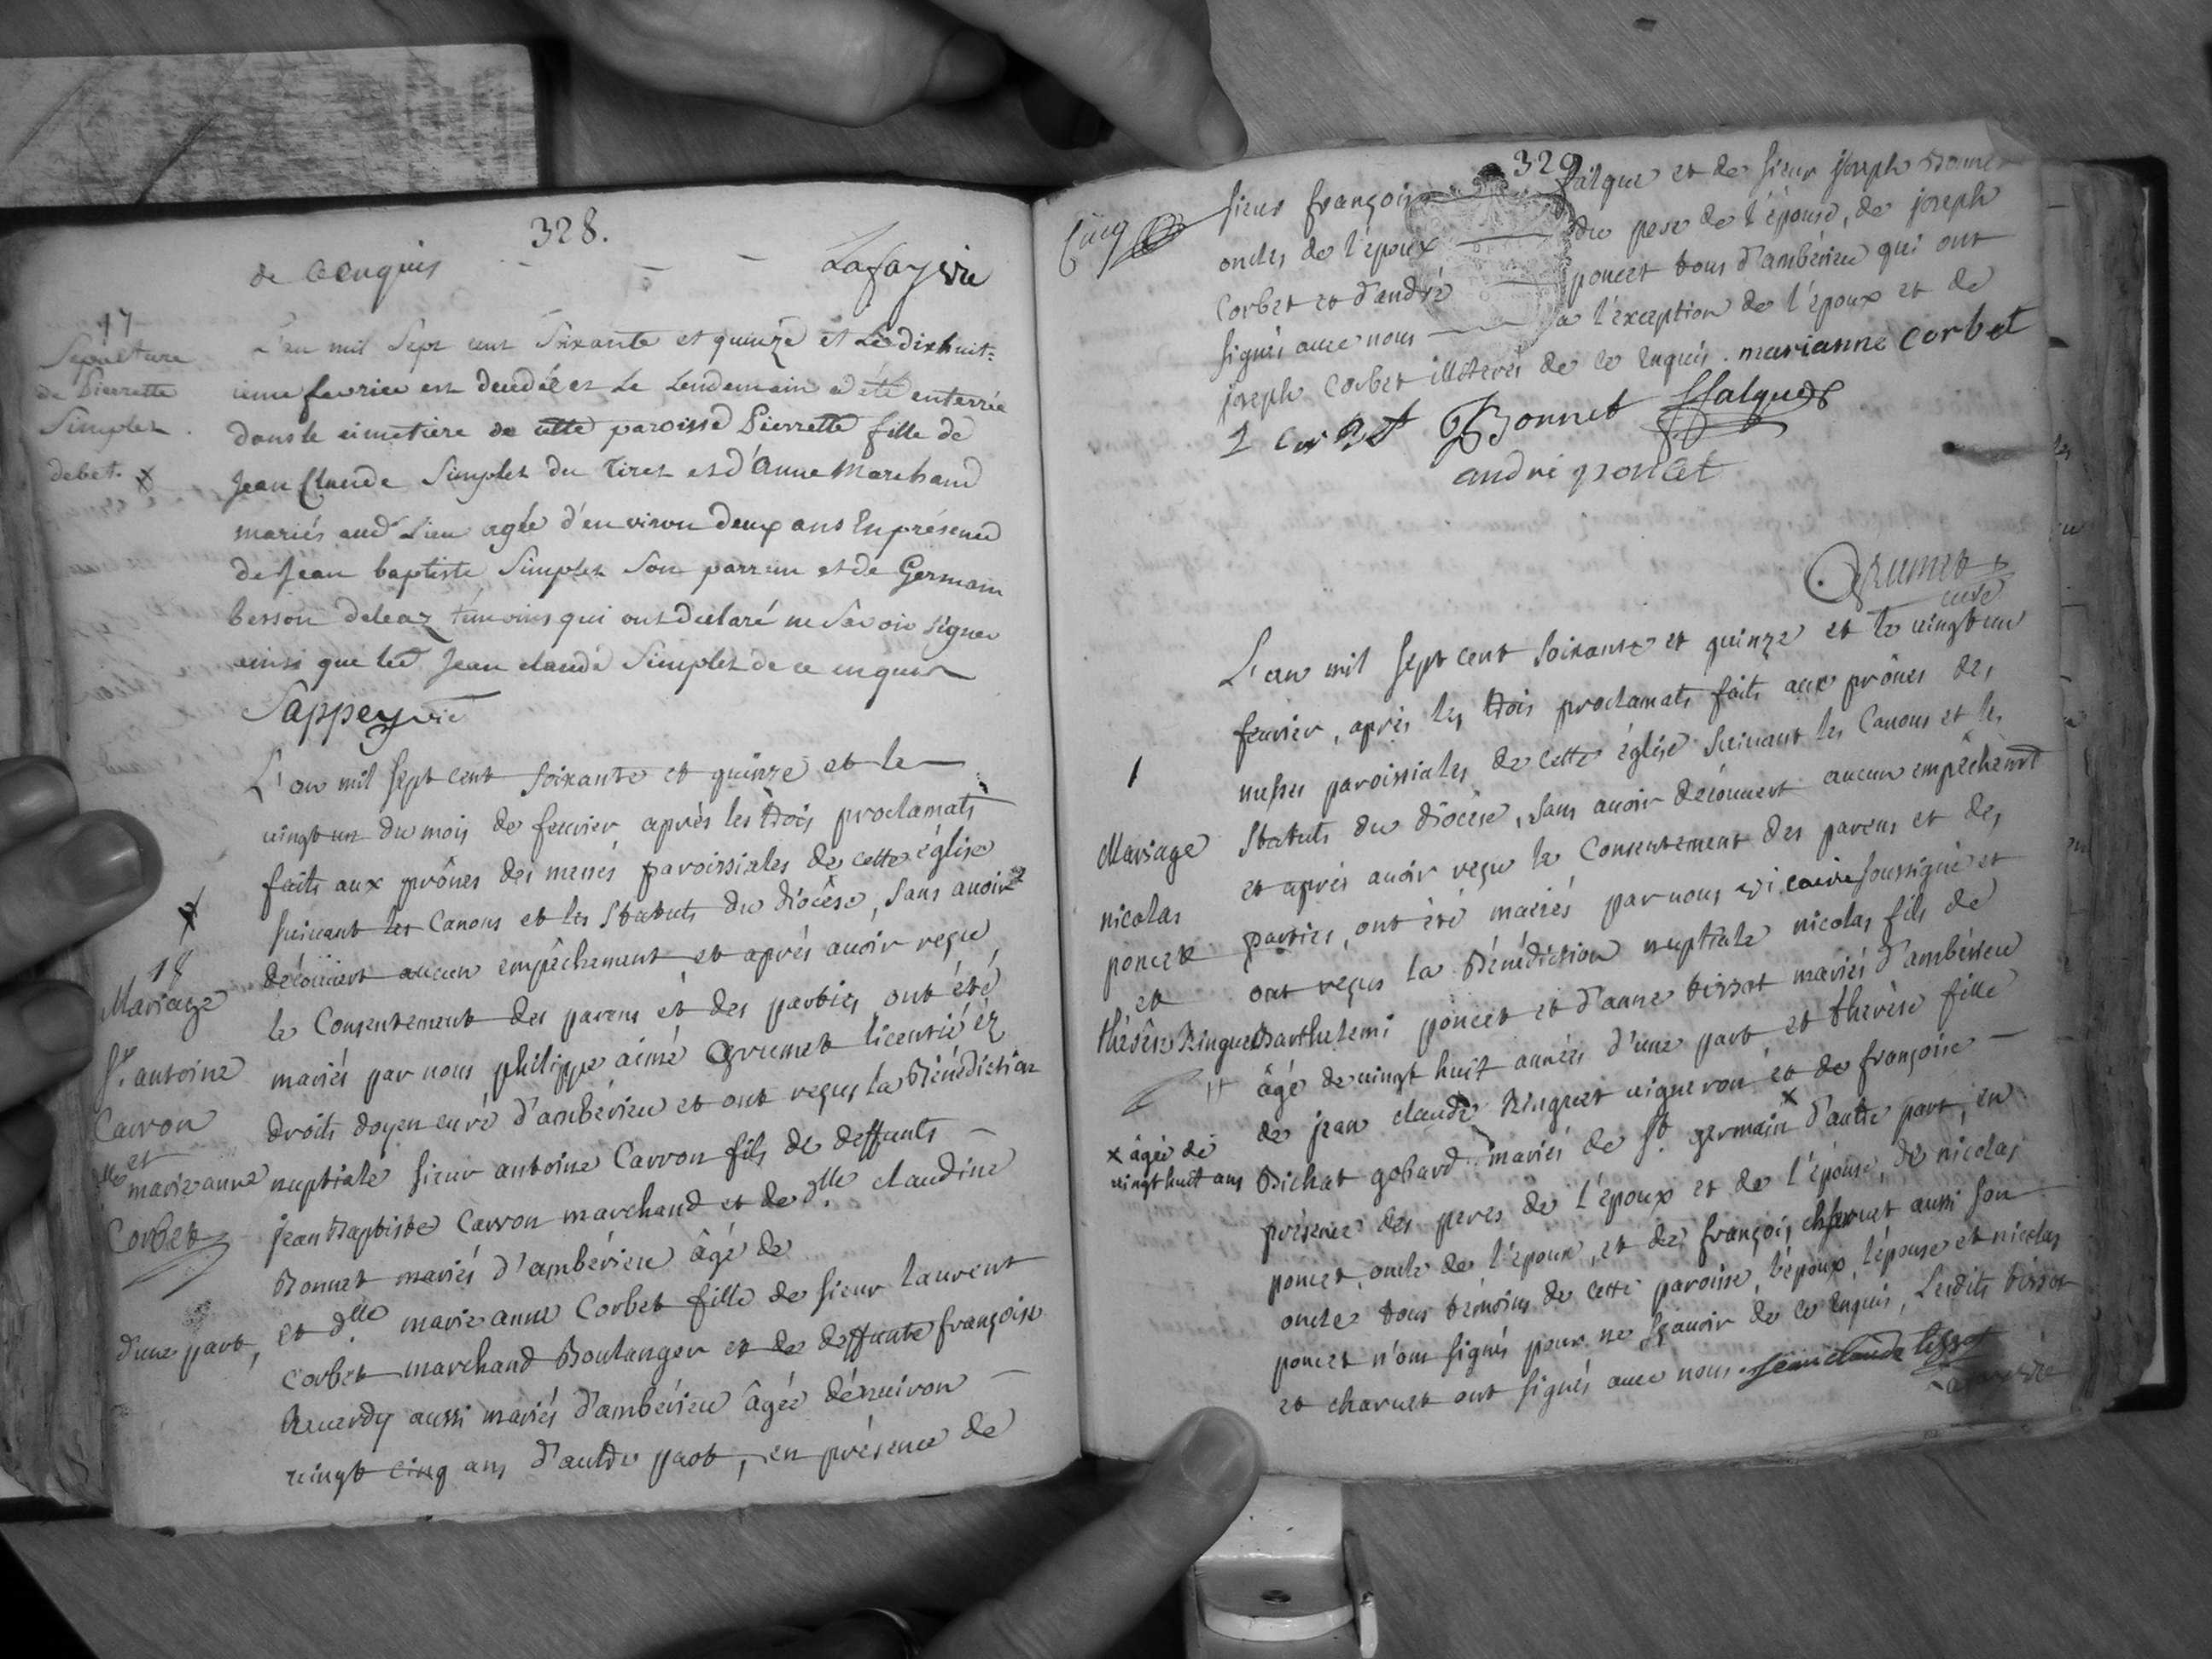 328.
de ce enquis - - - Lafay vic
17
Sepulture
de Pierrette
Simplet.
debet. x
L'an mil Sept cent Soixante et quinze et Le dixhuit=
ieme fevrier est decedée et Le Lendemain a été enterrée
dans le cimetiere de cette paroisse Pierrette fille de
Jean Claude Simplet du Tiret et d'Anne Marchand
mariés aud Lieu agée d'environ deux ans En présence
de Jean baptiste Simplet Son parrein et de Germain
besson temoins qui ont declaré ne Savoir signer
ainsi que led Jean claude Simplet de ce enquis
Sappey vic
18
Mariage
Sr. antoine
Carron
et
dlle marie anne
Corbet
L'an mil sept cent soixante et quinze et le
vingt un du mois de fevrier après les trois proclamats
faits aux prônes des messes paroissiales de cette église
suivant les Canons et les Statuts du diocèse, sans avoir
découvert aucun empêchement et après avoir reçu
le Consentement des parens et des parties ont été
mariés par nous philippe aimé Grumet licentié ez
droits doyen curé d'ambérieu et ont reçus la Bénédiction
nuptiale sieur antoine Carron fils de deffunts
jean Baptiste Carron marchand et de dlle claudine
Bonnet mariés d'ambérieu âgé de
d'une part, et dlle marie anne Corbet fille de sieur laurent
Corbet marchand Boulanger et de deffunte françoise
Reverdy aussi mariés d'ambérieu âgée d'environ
vingt cinq ans d'autre part, en présence de
329
Cinq
sieur françois falque et de sieur joseph Bonnet
oncles de l'époux du pere de l'épouse, de joseph
Corbet et d'andré poncet tous d'ambérieu qui ont
signés avec nous a l'exception de l'époux et de
joseph Corbet illeterés de ce enquis. marianne corbet
L Corbet Bonnet falque
andré poncet
Grumet
curé
1
Mariage
nicolas
poncet
et
thérèse Ringuet
L'an mil sept cent soixante et quinze et le vingt un
fevrier, après les trois proclamats faits aux prônes des
messes paroissiales de cette église suivant les Canons et les
Statuts du diocèse, sans avoir découvert aucun empêchement
et après avoir reçu le Consentement des parens et des
parties, ont été mariés par nous vicaire soussigné et
ont reçus la Bénédiction nuptiale nicolas fils de
Barthelemi poncet et d'anne tissot mariés d'ambérieu
âgé de vingt huit années d'une part et thérèse fille
de jean claude Ringuet vigneron et de françoise
x âgée de
vingt huit ans
Bichat gobard mariés de St. germain x d'autre part, en
présence des peres de l'époux et de l'épouse, de nicolas
poncet oncle de l'époux, et de françois charvet aussi son
oncle tous témoins de cette paroisse, l'époux, l'épouse et nicolas
poncet n'ont signés pour ne sçavoir de ce enquis, Lesdits tissot
et charvet ont signés avec nous. jean claude tissot